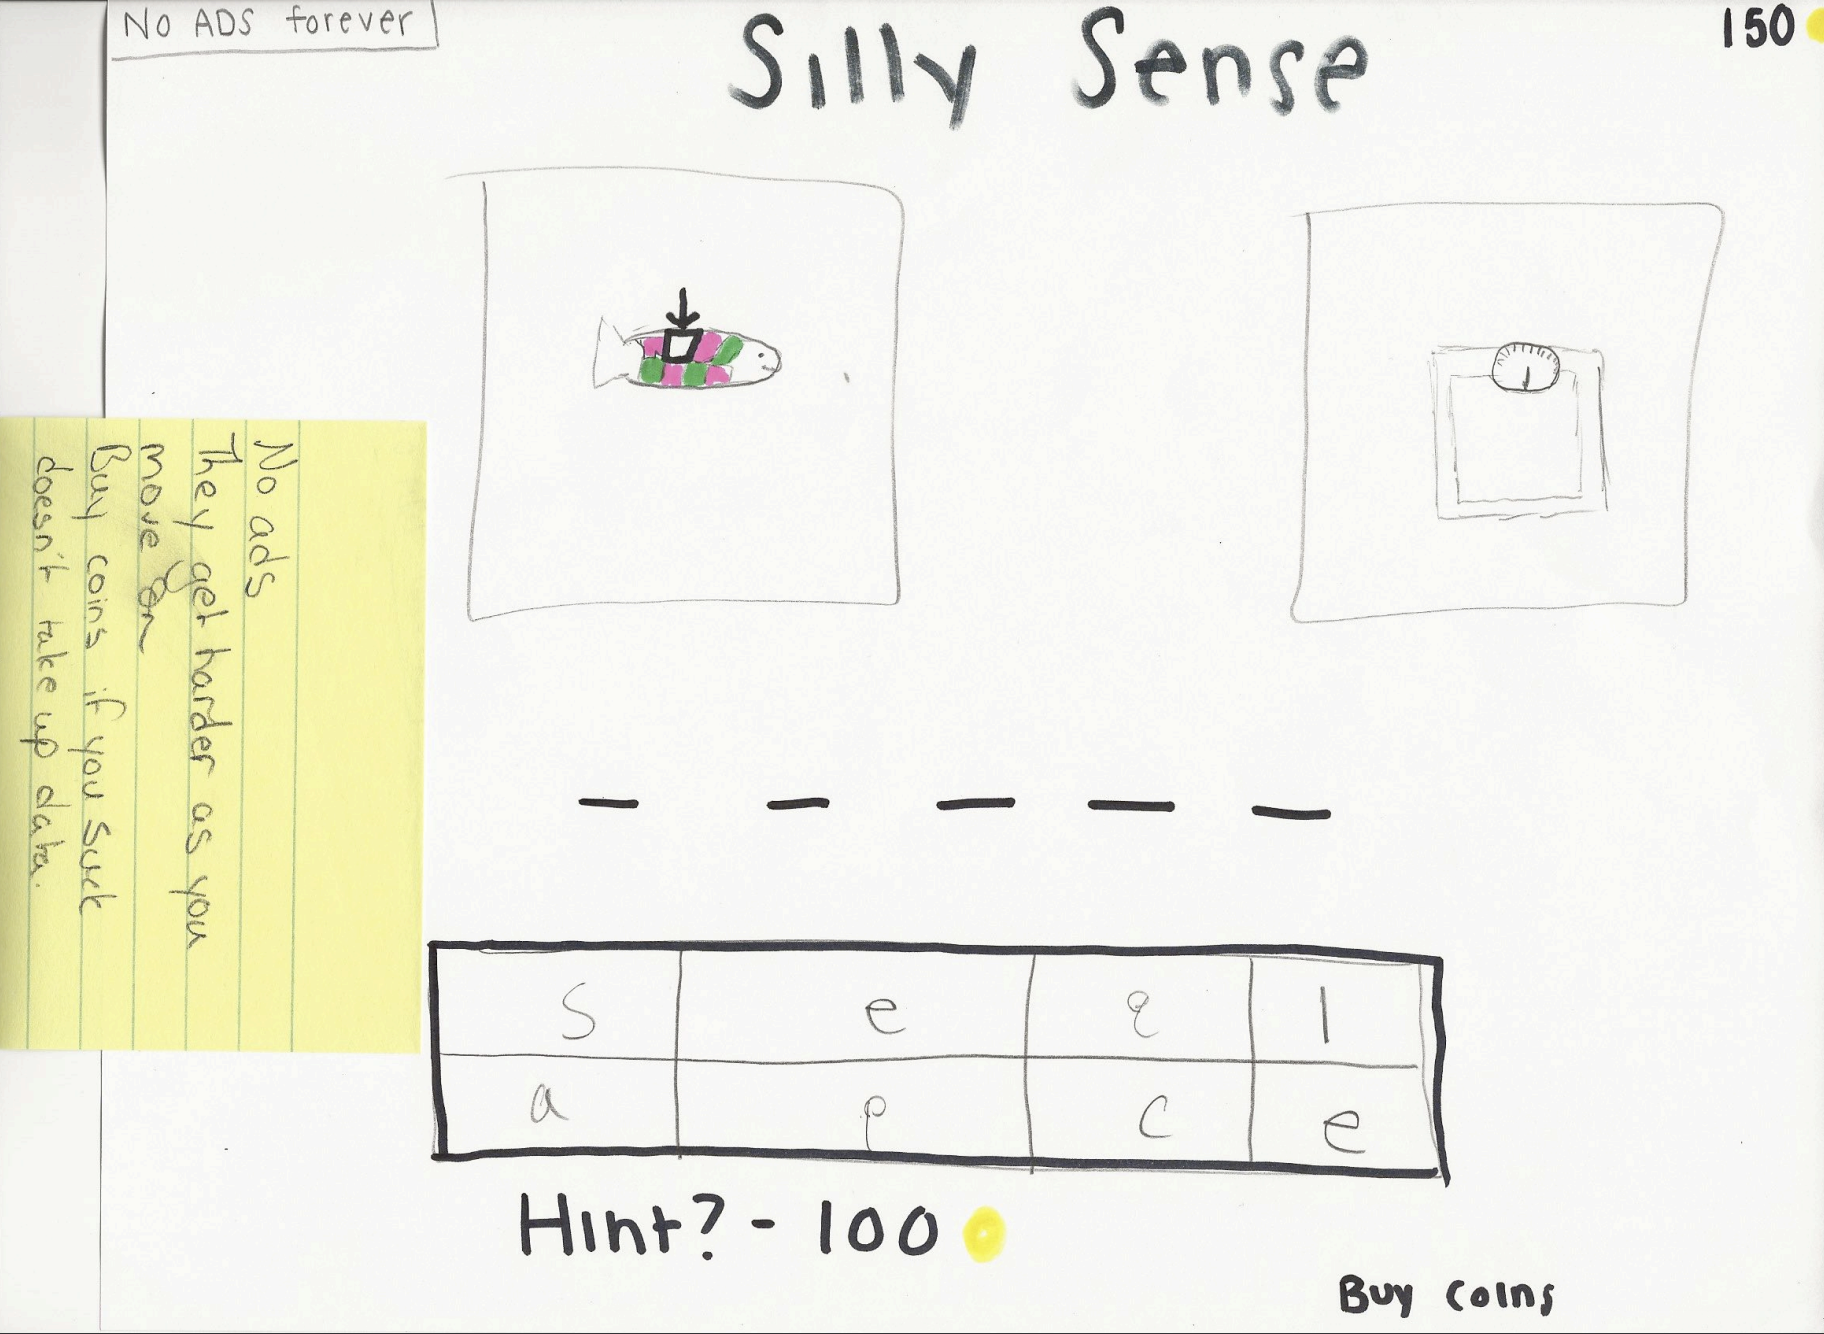 No ADS forever
Silly Sense
150
No ads
They get harder as you
move on
Buy coins if you suck
doesn't take up data.
s e q l
a p c e
Hint? - 100
Buy coins